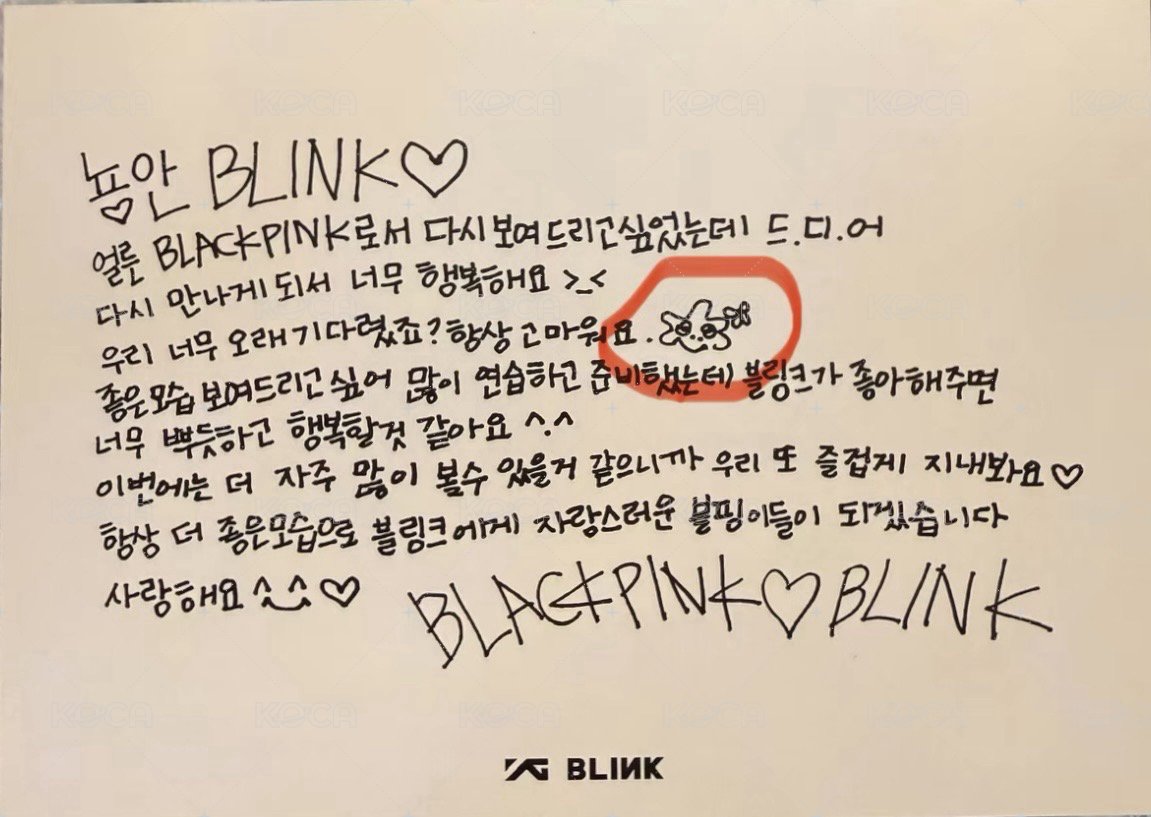 뇽안 BLINK♡
얼릇 BLACKPINK로서 다시 보여드리고싶었는데 드.디.어
다시 만나게되서 너무 행복해요 >_<
우리 너무 오래 기다렸죠? 항상 고마워요.
좋은모습 보여드리고 싶어 많이 연습하고 준비했는데 블링크가 좋아해주면
너무 뿌듯하고 행복할것 같아요 ^.^
이번에는 더 자주 많이 볼수 있을거 같으니까 우리 또 즐겁게 지내봐요♡
항상 더 좋은모습으로 블링크에게 자랑스러운 블핑이들이 되겠습니다
사랑해요 ^_^ ♡
BLACKPINK♡BLINK
YG BLINK
KOCA KOCA KOCA KOCA KOCA KOCA